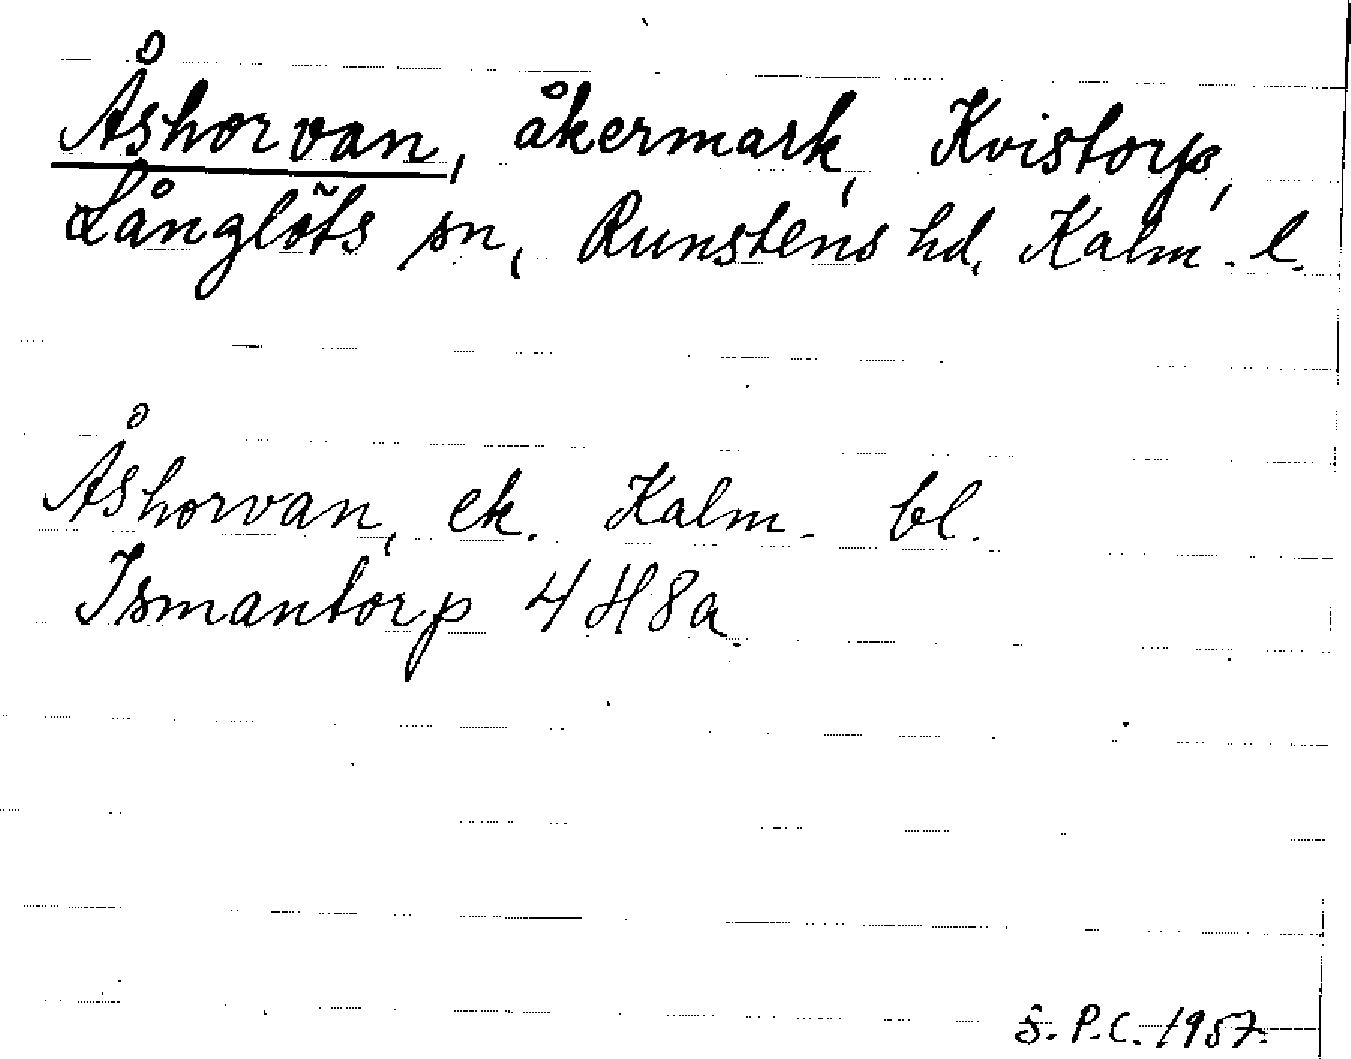 Åshorvan, åkermark, Kvistorp,
Långlöts sn, Runstens hd, Kalm. l.
Åshorvan, ek. Kalm. bl.
Ismantorp 4H8a.
S. P.C. 1957.